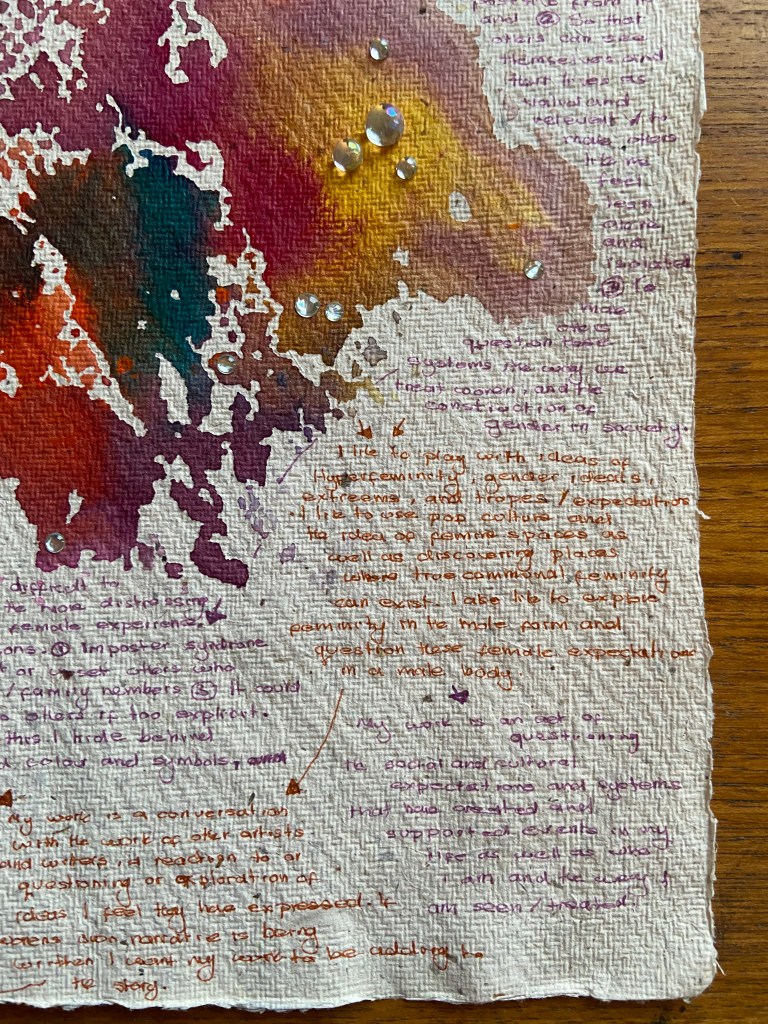 and ② so that
others can see
themselves and
their lives as
valued and
relevent / to
make others
like me
feel
less
alone
and
isolated
③ To
make
others
question these
systems the way we
treat women, and the
construction of
gender in society.
I like to play with ideas of
Hyperfeminity, gender ideals,
extreems, and tropes / expectations
I like to use pop culture and
the idea of femine spaces as
well as discovering places
where true communal feminity
can exist. I also like to explore
feminity in the male form and
question these female expectations
in a male body.
difficult to
the more distressing
female experience.
ons: ① Imposter syndrome
t or upset others who
/family members ③ It could
others if too explicit.
this I hide behind
colour and symbols, and
My work is an act of
questioning
the social and cultural
expectations and systems
that have created and
supported events in my
life as well as who
I am and the way I
am seen / treated.
My work is a conversation
with the work of other artists
and writers, in reaction to or
questioning or exploration of
ideas I feel they have expressed. If
womens own narrative is being
written I want my work to be adding to
the story.